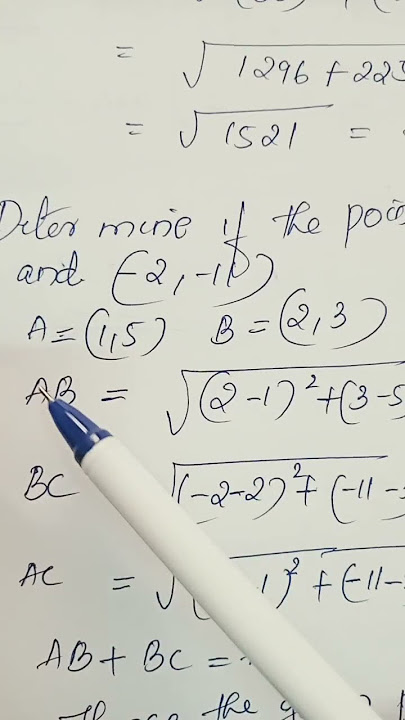 = √1296 + 225
= √1521 =
Determine if the poin
and (-2, -11)
A = (1,5) B = (2,3)
AB = √(2-1)² + (3-5
BC √(-2-2)² + (-11-
AC = √ 1)² + (-11-
AB + BC =
the